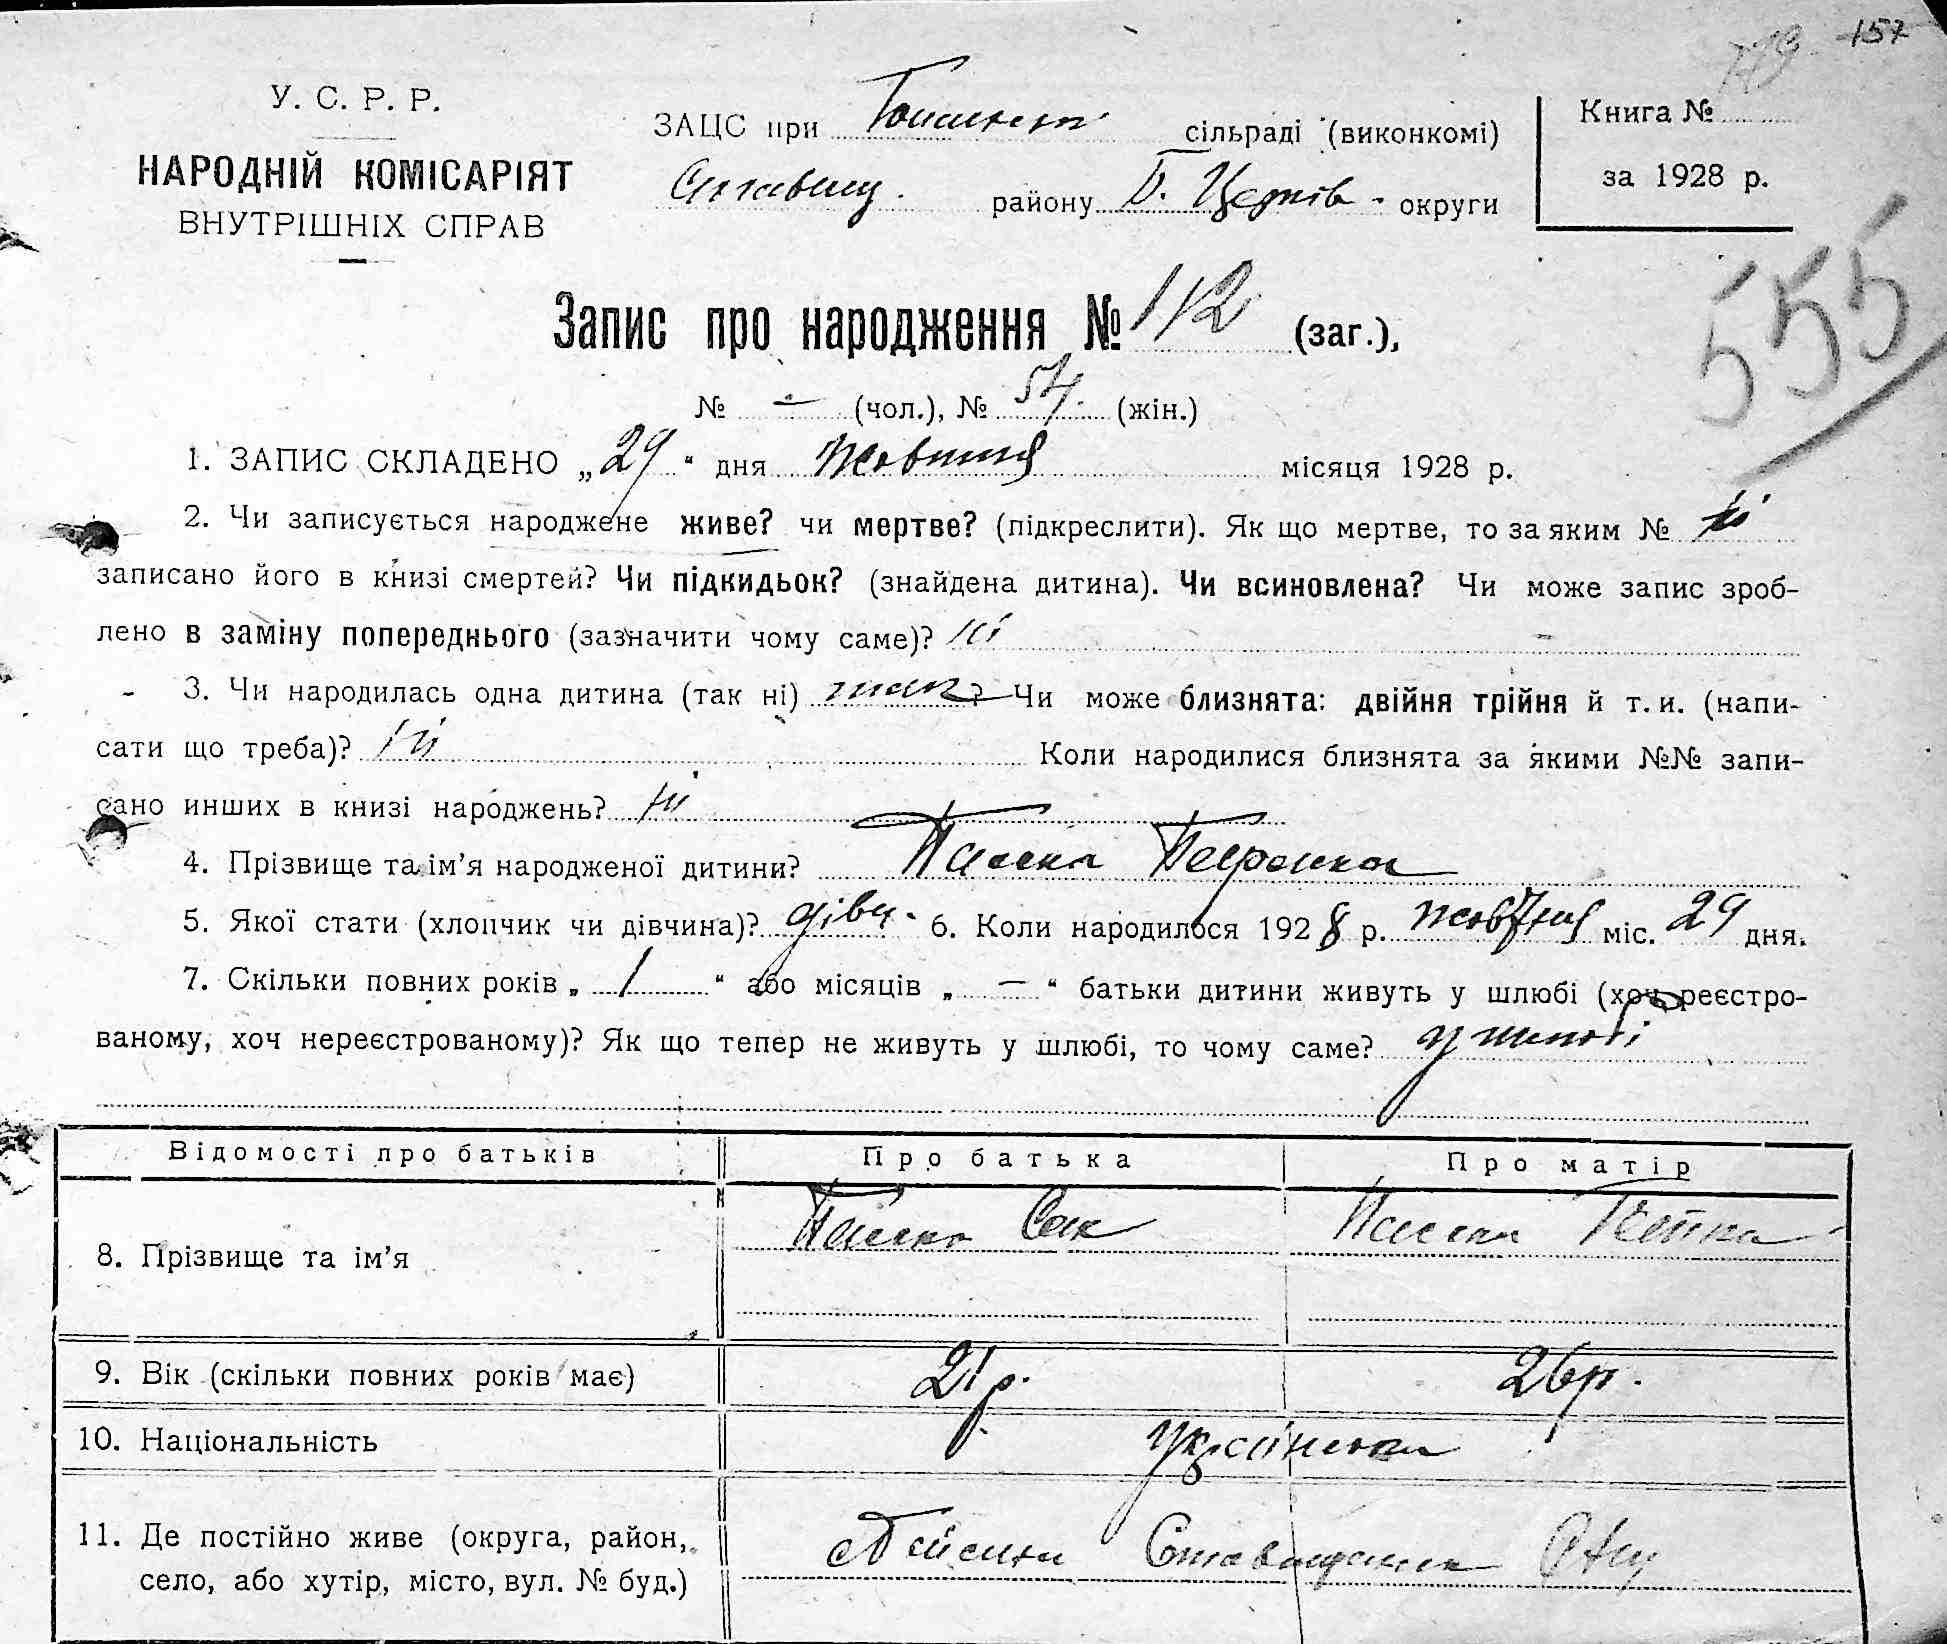 157
У. С. Р. Р.
НАРОДНІЙ КОМІСАРІЯТ
ВНУТРІШНІХ СПРАВ
ЗАЦС при сільраді (виконкомі)
району Б. Церків. округи
Книга №
за 1928 р.
555
Запис про народження № 112 (заг.),
№ — (чол.), № 54. (жін.)
1. ЗАПИС СКЛАДЕНО „29“ дня жовтня місяця 1928 р.
2. Чи записується народжене живе? чи мертве? (підкреслити). Як що мертве, то за яким № ні
записано його в книзі смертей? Чи підкидьок? (знайдена дитина). Чи всиновлена? Чи може запис зроб-
лено в заміну попереднього (зазначити чому саме)? ні
3. Чи народилась одна дитина (так ні) так? Чи може близнята: двійня трійня й т. и. (напи-
сати що треба)? ні Коли народилися близнята за якими №№ запи-
сано инших в книзі народжень? ні
4. Прізвище та ім’я народженої дитини?
5. Якої стати (хлопчик чи дівчина)? дівч. 6. Коли народилося 1928 р. жовтня міс. 29 дня.
7. Скільки повних років „ 1 “ або місяців „ — “ батьки дитини живуть у шлюбі (хоч реєстро-
ваному, хоч нереєстрованому)? Як що тепер не живуть у шлюбі, то чому саме? у шлюбі
Відомості про батьків Про батька Про матір
8. Прізвище та ім’я
9. Вік (скільки повних років має) 21 р. 26 р.
10. Національність
11. Де постійно живе (округа, район,
село, або хутір, місто, вул. № буд.)